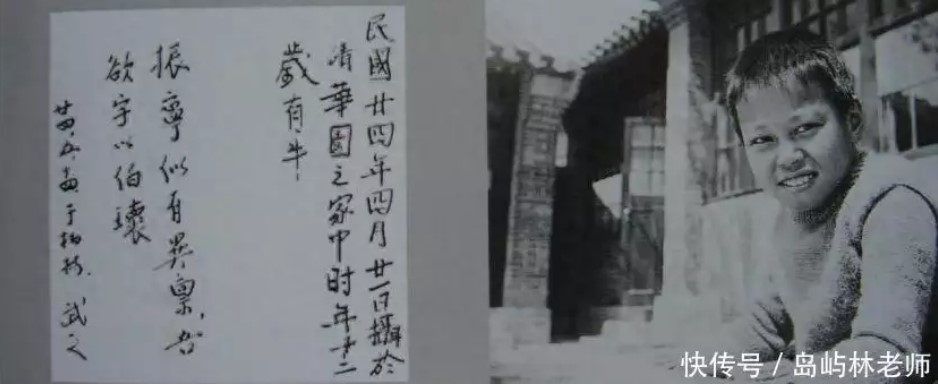 民國廿四年四月廿一日攝於
清華園之家中时年十二
歲有半
振寧似有異稟，吾
欲字以伯瓌
武之
快传号／岛屿林老师